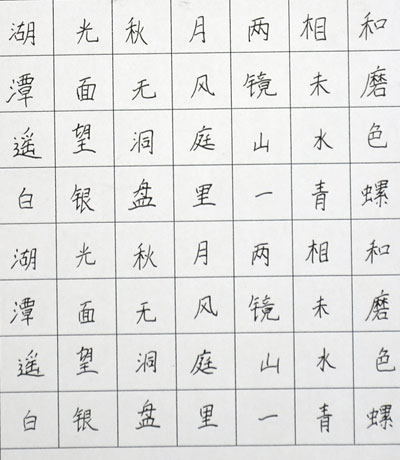 湖光秋月两相和
潭面无风镜未磨
遥望洞庭山水色
白银盘里一青螺
湖光秋月两相和
潭面无风镜未磨
遥望洞庭山水色
白银盘里一青螺